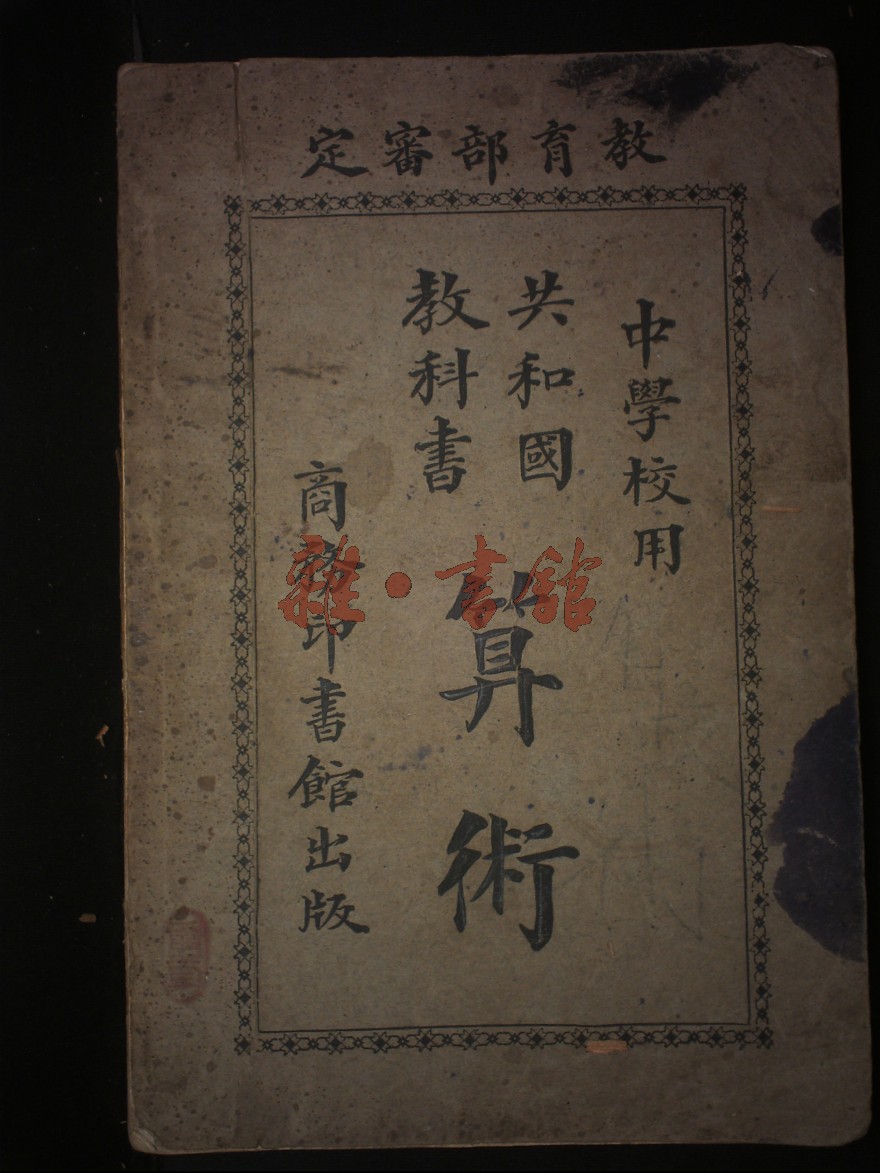 教育部審定
中學校用
共和國
教科書
算術
商務印書館出版
雜·書舘